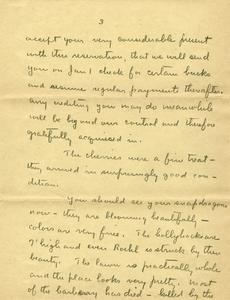 3
accept your very considerable present
with this reservation, that we will send
you on Jan 1 check for certain bucks
and resume regular payments thereafter.
Any crediting you may do meanwhile
will be beyond our control and therefore
gratefully acquiesced in.
The cherries were a fine treat—
they arrived in surprisingly good con-
dition.
You should see your snapdragons
now— they are blooming beautifully—
colors are very fine. The hollyhocks are
7' high and even Rockl is struck by their
beauty. The lawn is practically whole
and the place looks very pretty. Most
of the barberry has died— killed by the